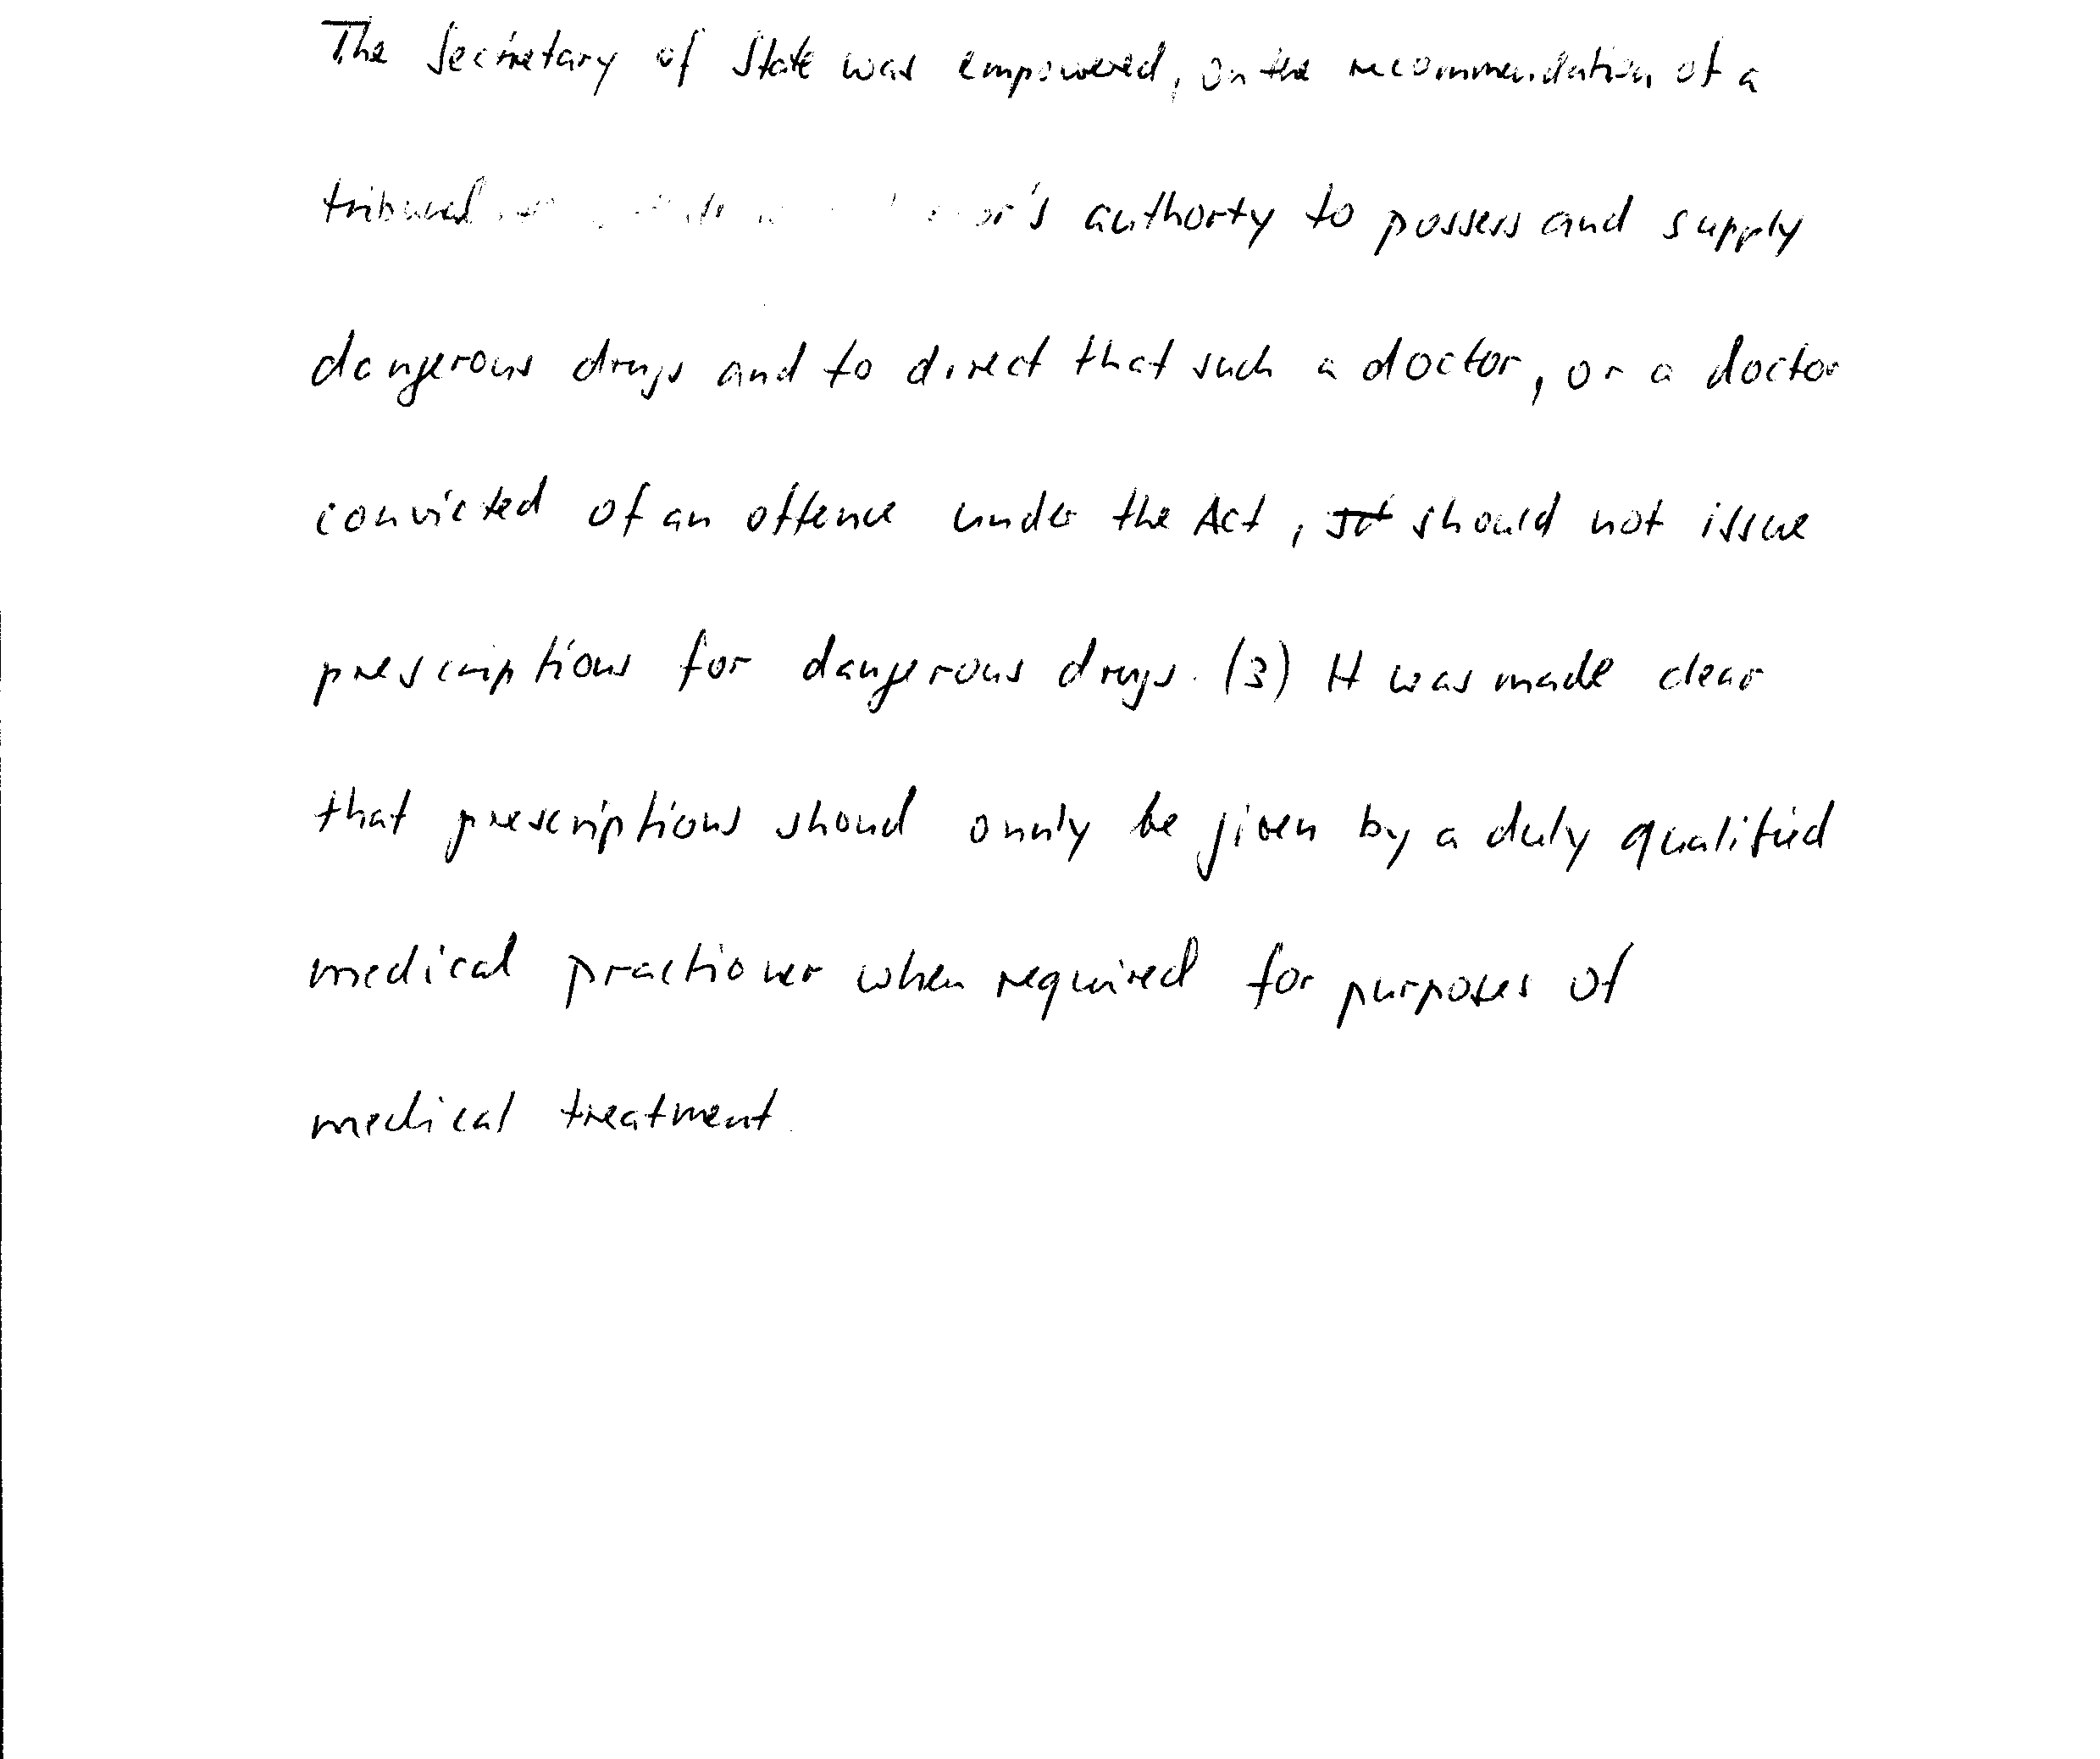 The Secretary of State was empowered, on the recommendation of a
tribunal, to authorty to possess and supply
dangerous drugs and to direct that such a doctor, or a doctor
convicted of an offence under the Act, should not issue
prescriptions for dangerous drugs. (3) It was made clear
that prescriptions shoud onnly be given by a duly qualified
medical practioner when required for purposes of
medical treatment.